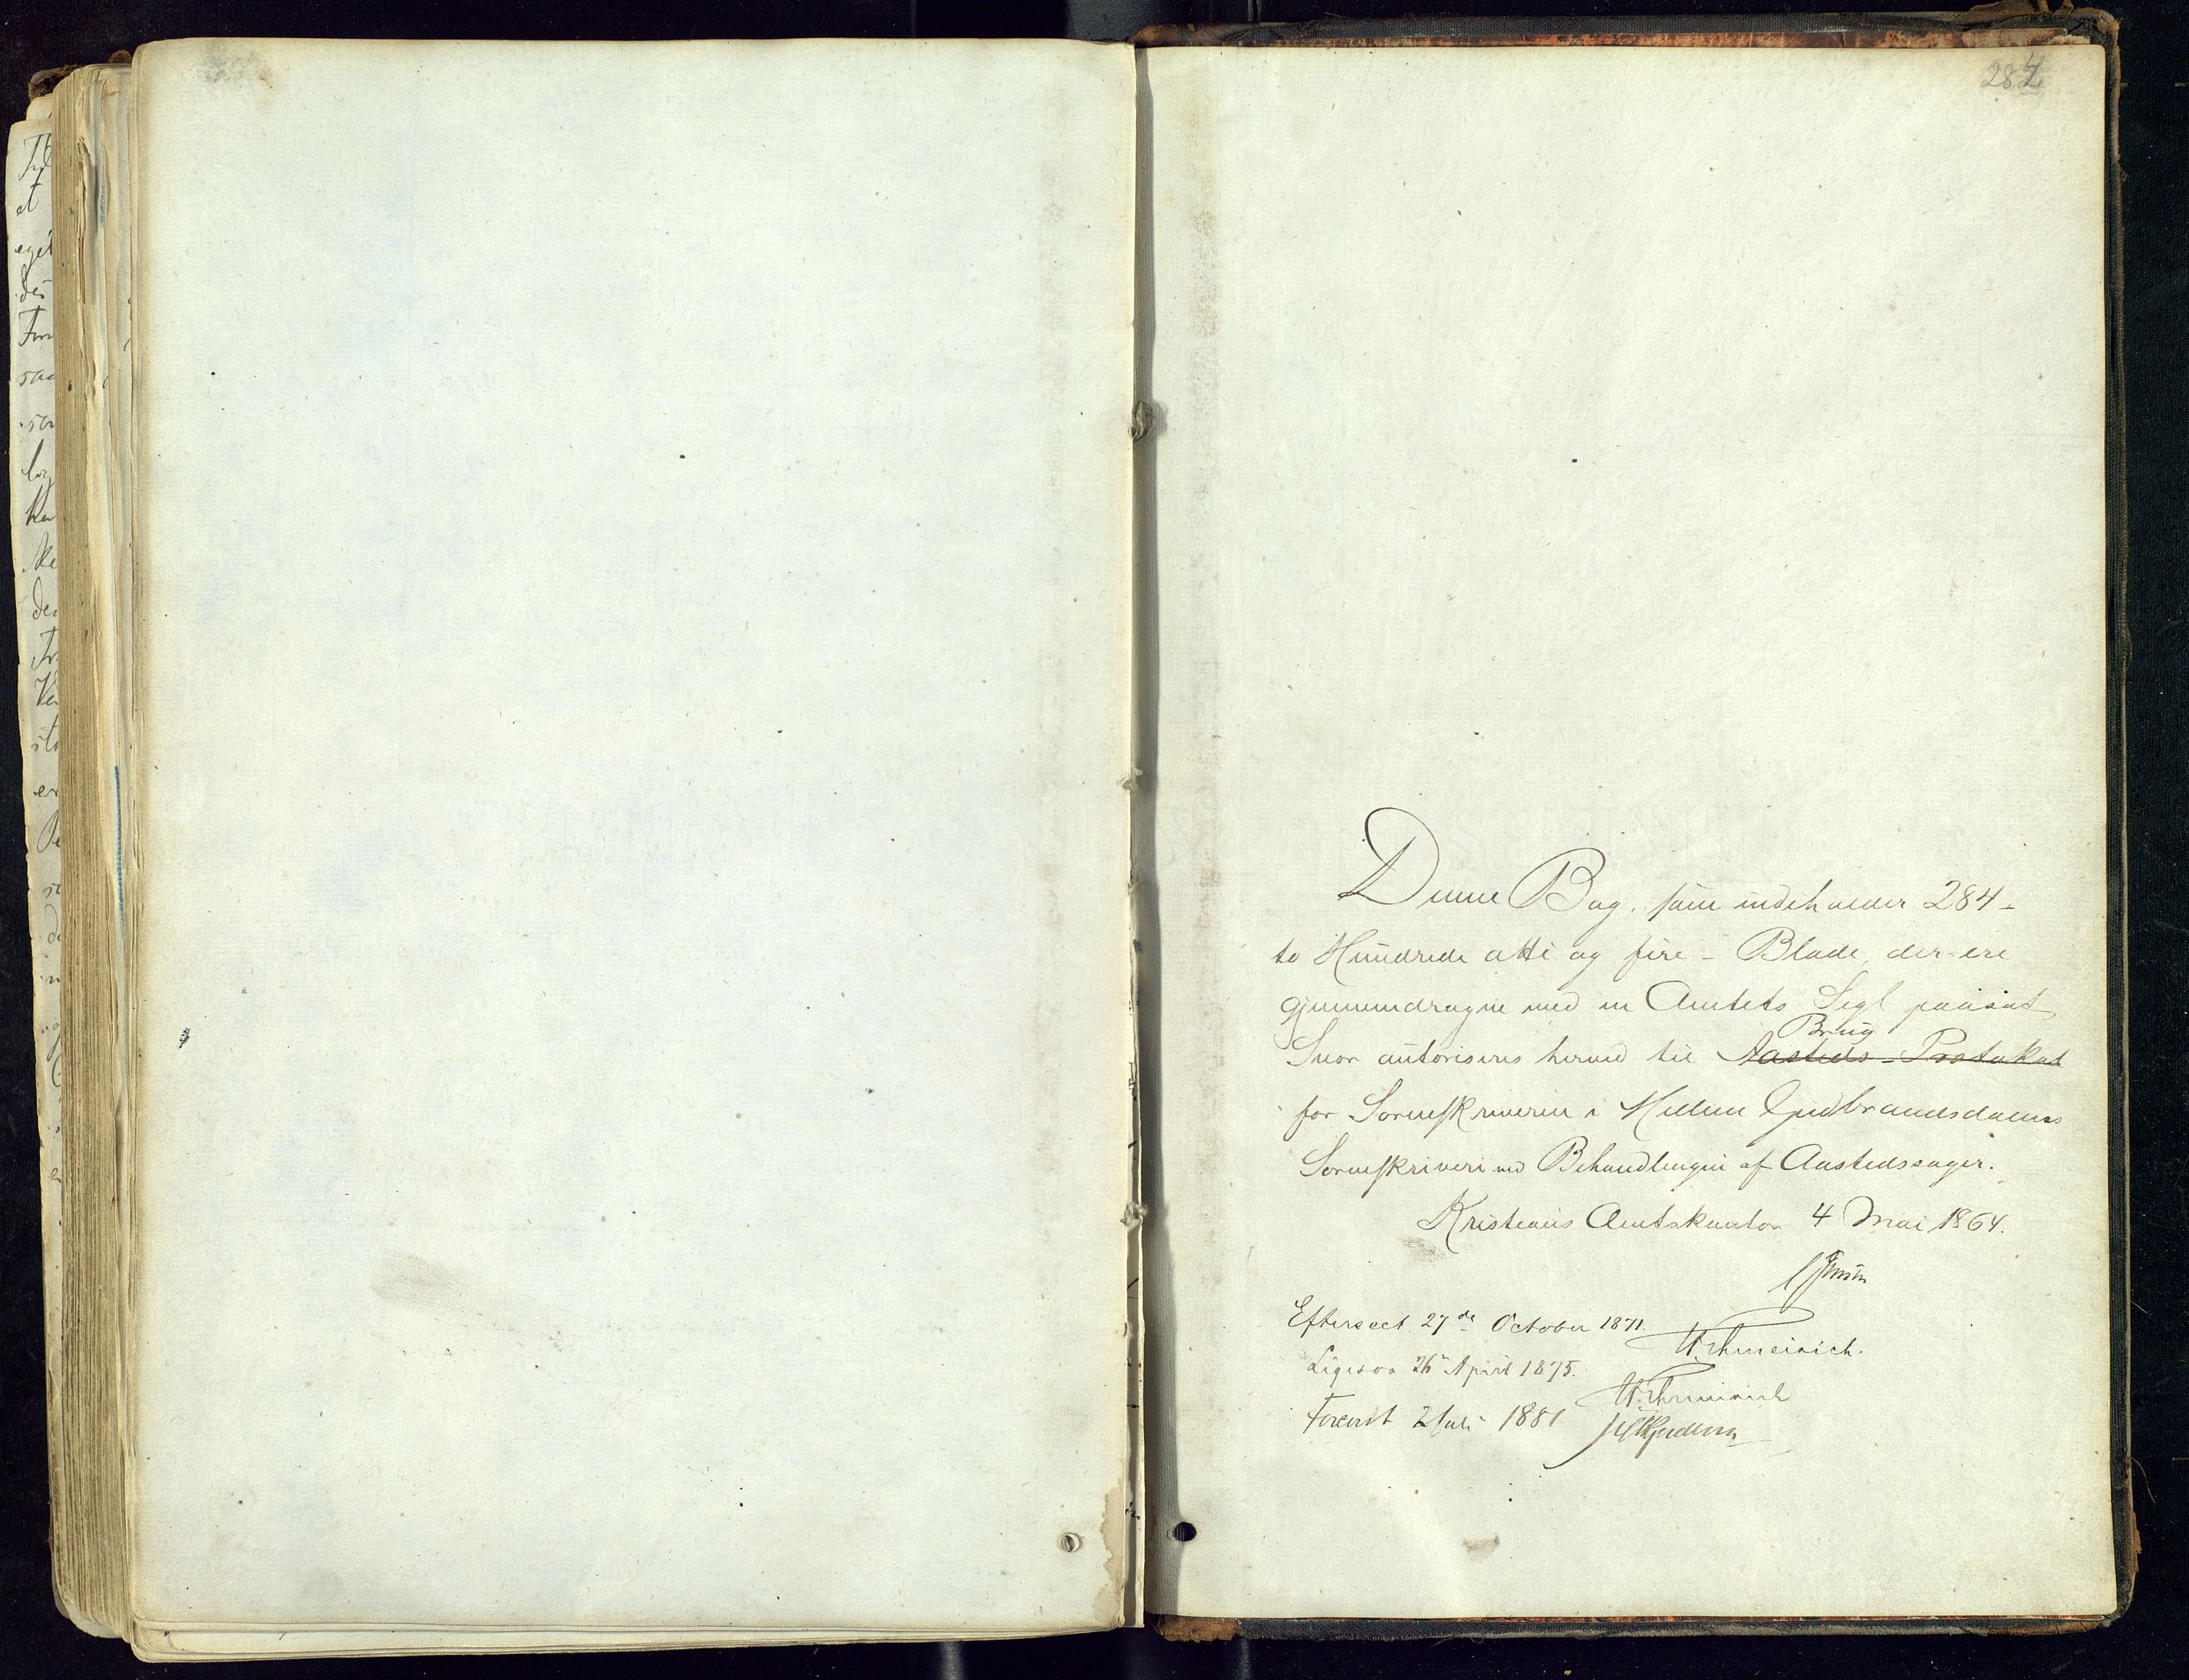 284
Denne Bog, som indeholder 284 -
to Hundrede otti og fire - Blade, der ere
gjennemdragne med en Amtets Segl paasat
Brug
Snor autoriseres herved til Aasteds-Protokol
for Sorenskriveren i Mellem Gudbrandsdalens
Sorenskriveri ved Behandlingen af Aastedssager.
Kristians Amtskontor 4 Mai 1864.
Efterseet 27de October 1871.
Ligesaa 26 April 1875.
Forevist 2 Juli 1881